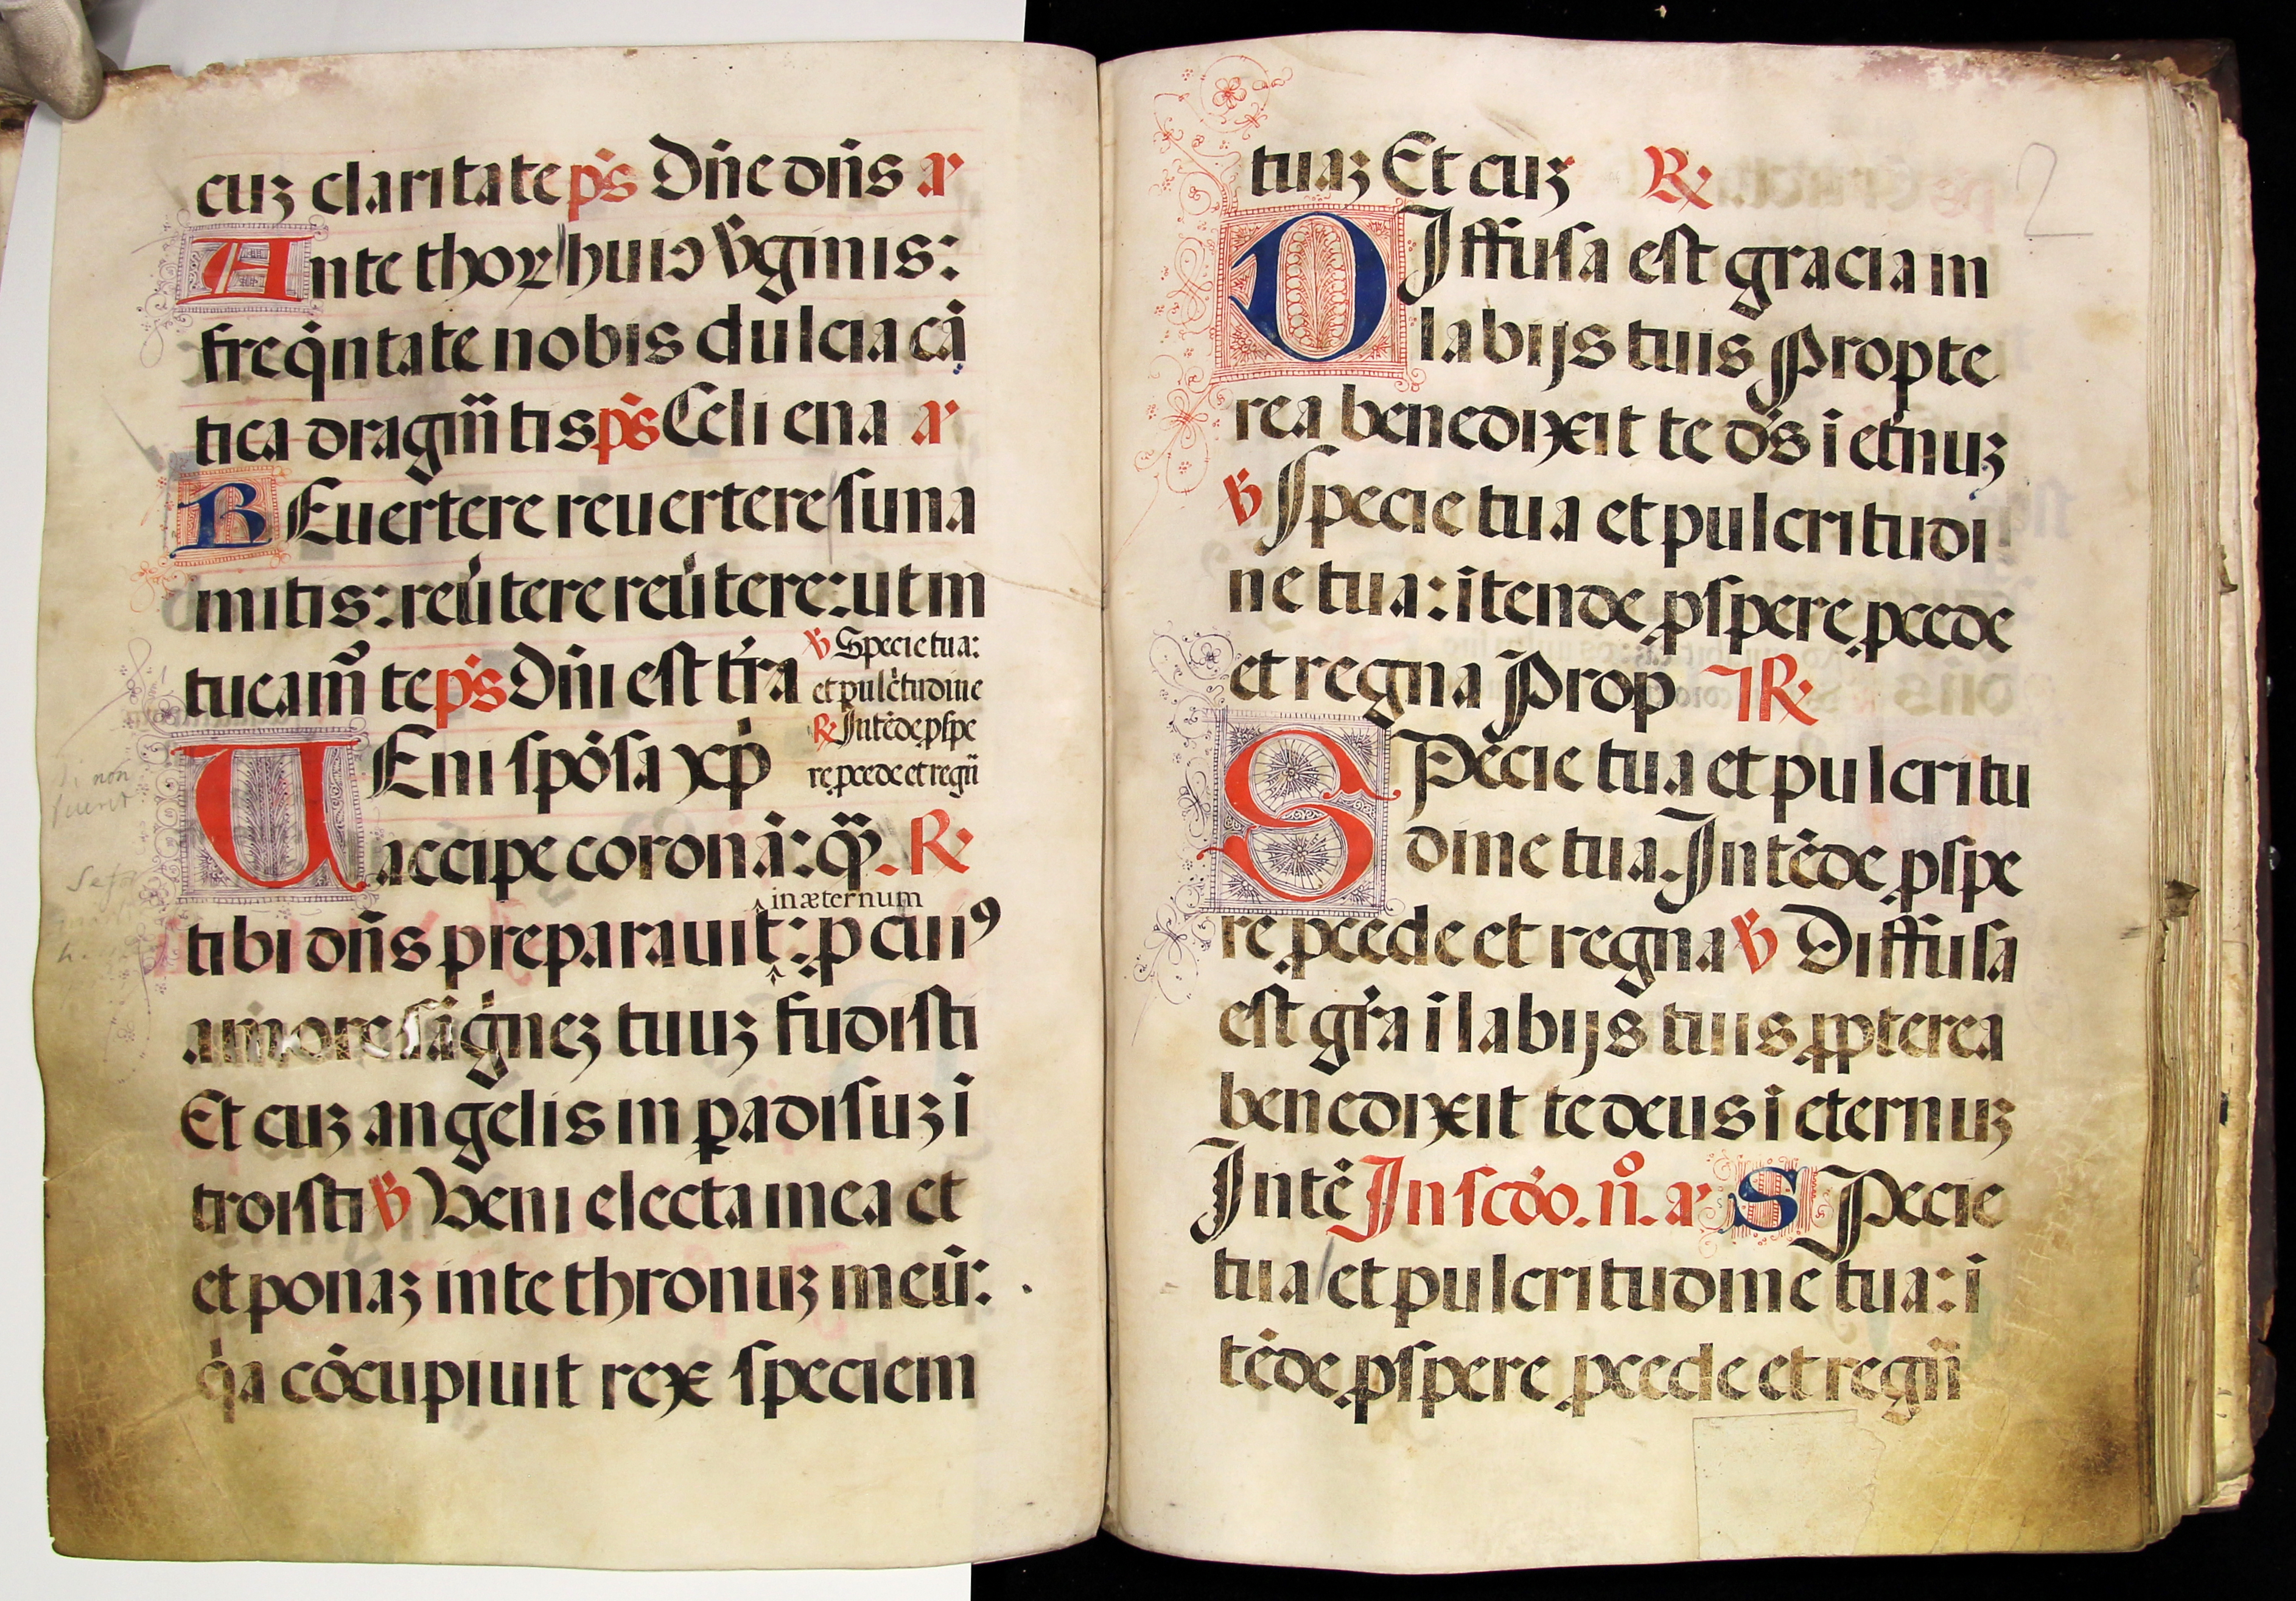 cuꝫ claritate ps Dñe dñs a
Ante thoꝝ huiꝰ v̉ginis:
freq̇ntate nobis dulcia cā
tica dragm̄tis ps Celi ena a
REuertere reuertere suna
mitis: reu̓tere reu̓tere: ut in
tueam̃ te ps Dñi est tr̓a
℣ Specie tua:
et pulc̓tudine
℟ Intēde ꝓspe
re ꝓcede et regn̄
UEni spōsa xp̄i
accipe coronā: q̄ꝫ. ℟
in æternum
tibi dñs preparauit: ꝓ cuiꝰ
amore sāgnez tuuꝫ fudisti
Et cuꝫ angelis in ꝑadisuꝫ i
troisti ℣ Veni electa mea et
et ponaꝫ in te thronuꝫ meū:
q̇a cōcupiuit rex speciem
2
tuaꝫ Et cuꝫ ℟
DIffusa est gracia in
labijs tuis Propte
rea benedixit te ds̄ i et̓nuꝫ
℣ Specie tua et pulcritudi
ne tua: itende ꝓspere ꝓcede
et regna Prop ℟
SPecie tua et pulcritu
dine tua. Intēde ꝓspe
re ꝓcede et regna ℣ Diffusa
est gr̃a i labijs tuis ꝓpterea
benedixit te deus i eternuꝫ
Intē In scd̓o. n̊. a SPecie
tua et pulcritudine tua: i
tēde ꝓspere ꝓcede et regn̄